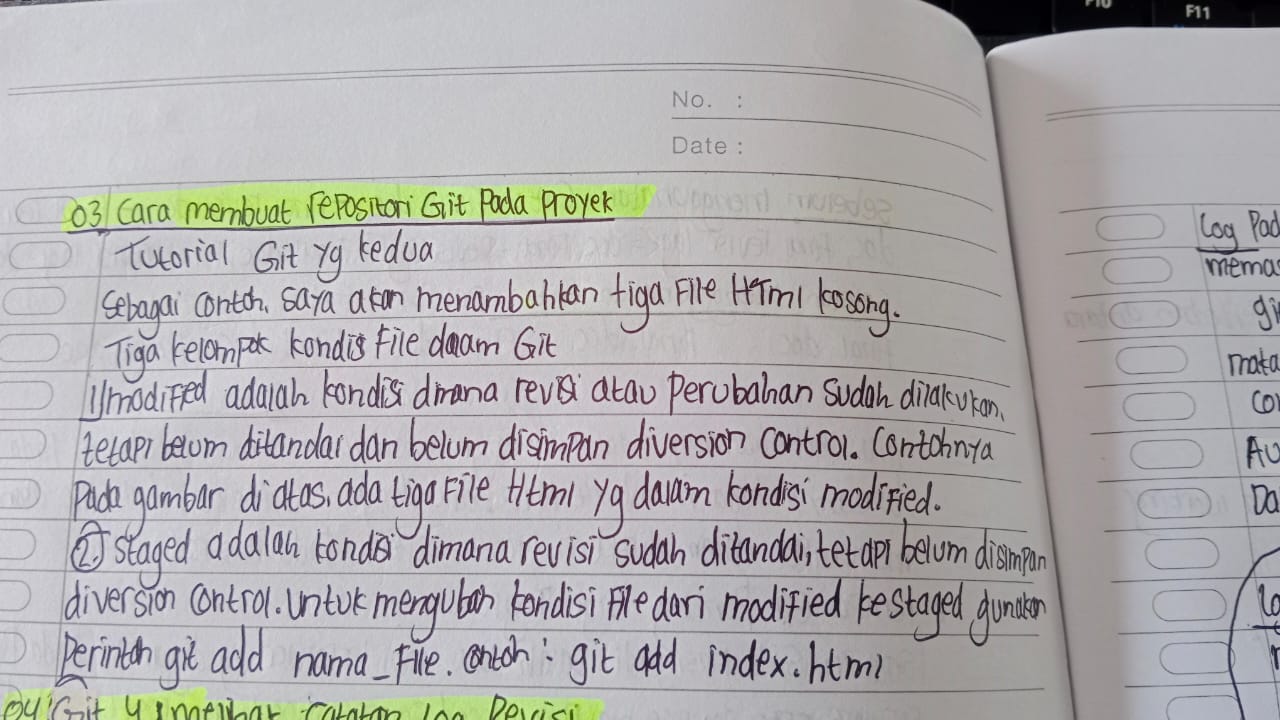 F10
F11
No. :
Date :
03/ Cara membuat repositori Git Pada Proyek
Tutorial Git yg kedua
Sebagai contoh, saya akan menambahkan tiga File HTml kosong.
Tiga kelompok kondisi File dalam Git
1/modified adalah kondisi dimana revisi atau Perubahan sudah dilakukan,
tetapi belum ditandai dan belum disimpan diversion control. Contohnya
Pada gambar di atas, ada tiga File Html yg dalam kondisi modified.
2. Staged adalah kondisi dimana revisi sudah ditandai, tetapi belum disimpan
diversion control. Untuk mengubah kondisi File dari modified ke staged gunakan
Perintah git add nama_File. contoh : git add index.html
04 Git 4 : melihat catatan log Revisi
Log Pad
memas
gi
mata
co
Au
Da